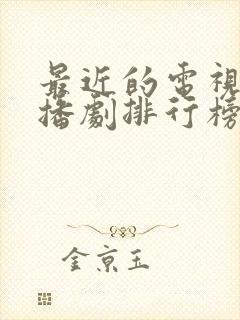 最近的電視
播劇排行榜
金京玉